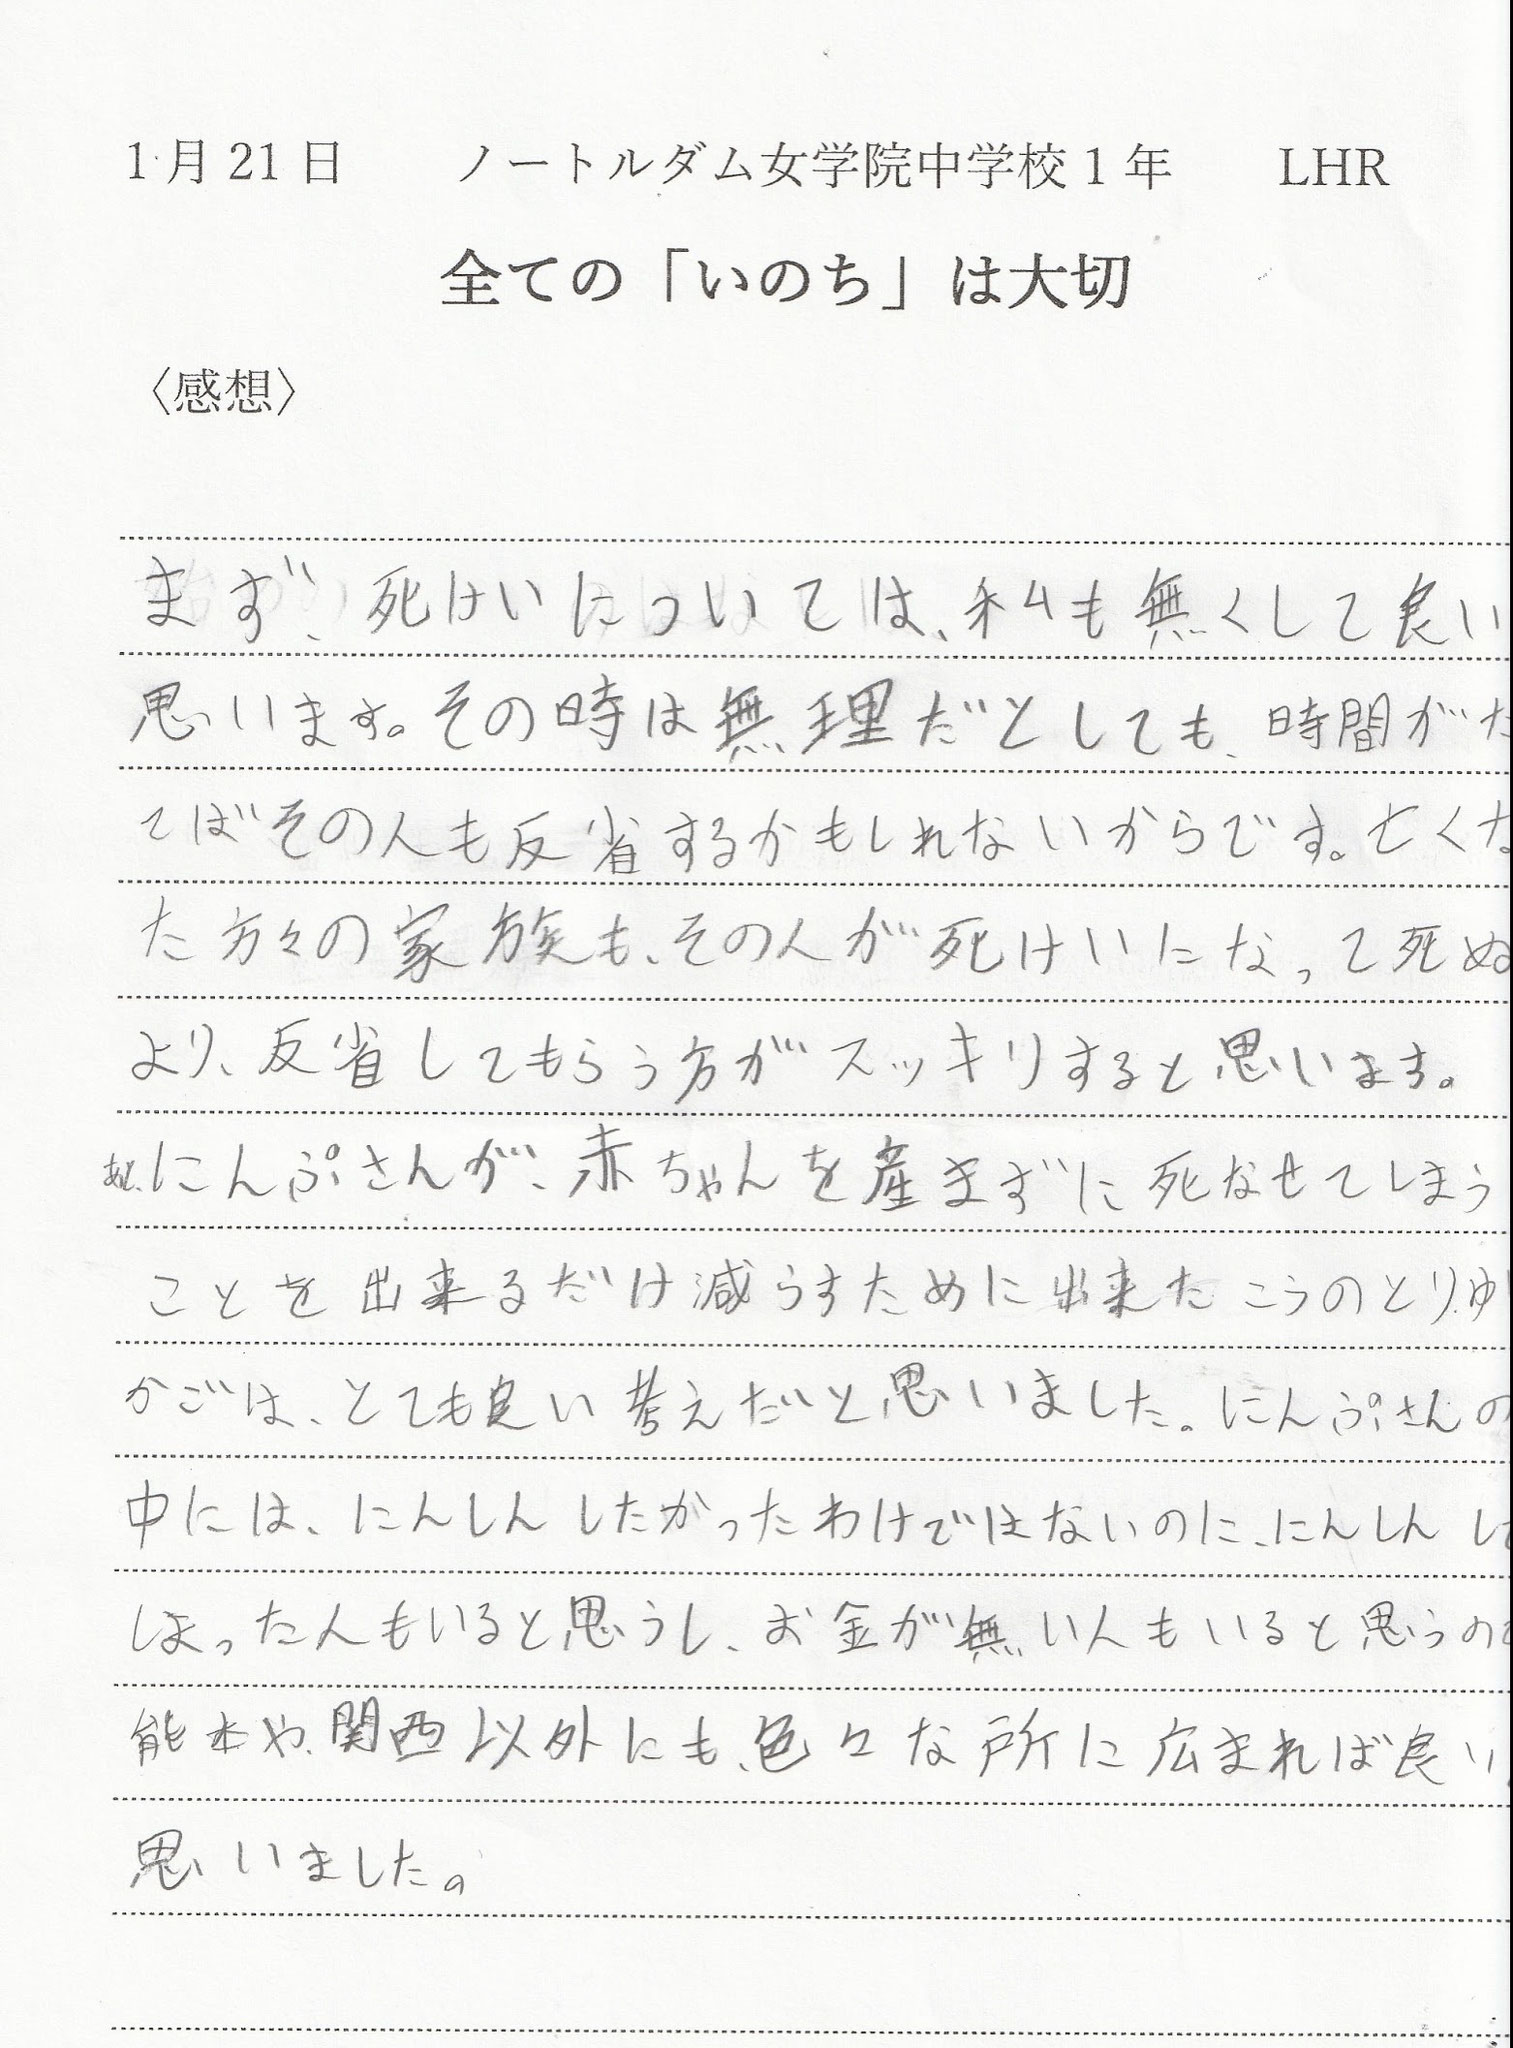 1月21日　ノートルダム女学院中学校1年　LHR
全ての「いのち」は大切
〈感想〉
まず、死けいについては、私も無くして良い
思います。その時は無理だとしても、時間がた
てばその人も反省するかもしれないからです。亡くな
た方々の家族も、その人が死けいになって死ぬ
より、反省してもらう方がスッキリすると思います。
あと、にんぷさんが、赤ちゃんを産まずに死なせてしまう
ことを出来るだけ減らすために出来たこうのとりゆり
かごは、とても良い考えだと思いました。にんぷさんの
中には、にんしんしたかったわけではないのに、にんしんして
しまった人もいると思うし、お金が無い人もいると思うので
熊本や、関西以外にも、色々な所に広まれば良い
思いました。